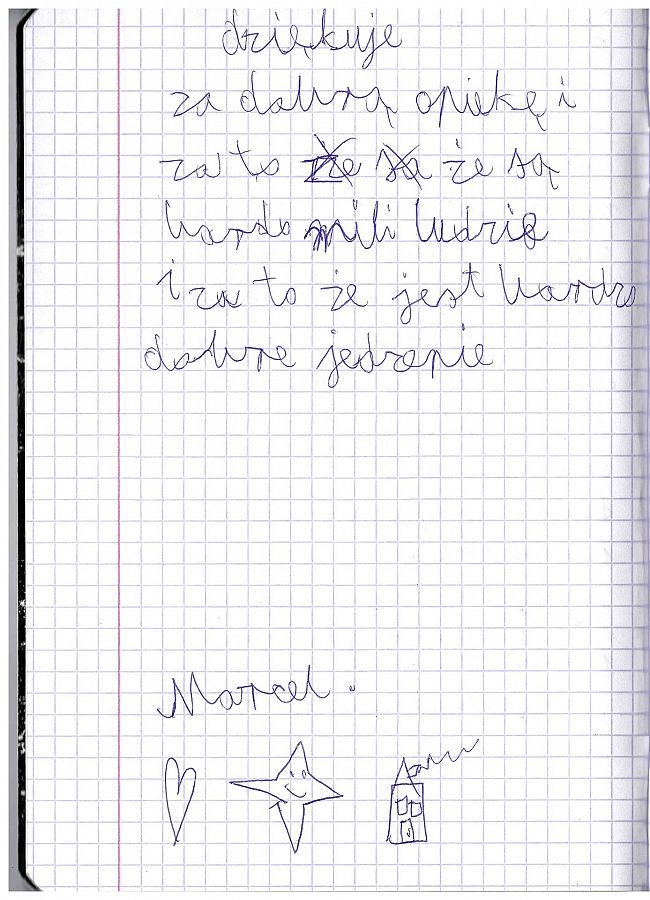 dziękuje
za dobrą opiekę i
za to że są
bardo mili ludzie
i za to że jest bardzo
dobre jedzenie
Marcel.